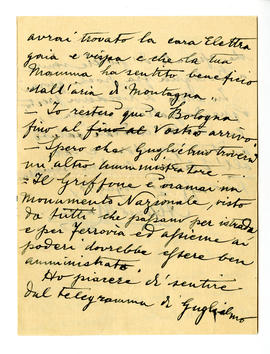 avrai trovato la cara Elettra
gaia e vispa e che la tua
Mamma ha sentito beneficio
dall'aria di Montagna –
– Io resterò qua a Bologna
fino al fino al Vostro arrivo.
– Spero che Guglielmo troverà
un'altro amministratore –
– Il Griffone è oramai un
Monumento Nazionale, visto
da tutti che passano per istrada
e per Ferrovia ed assieme ai
poderi dovrebbe essere ben
amministrato.
Ho piacere di sentire
dal telegramma di Guglielmo